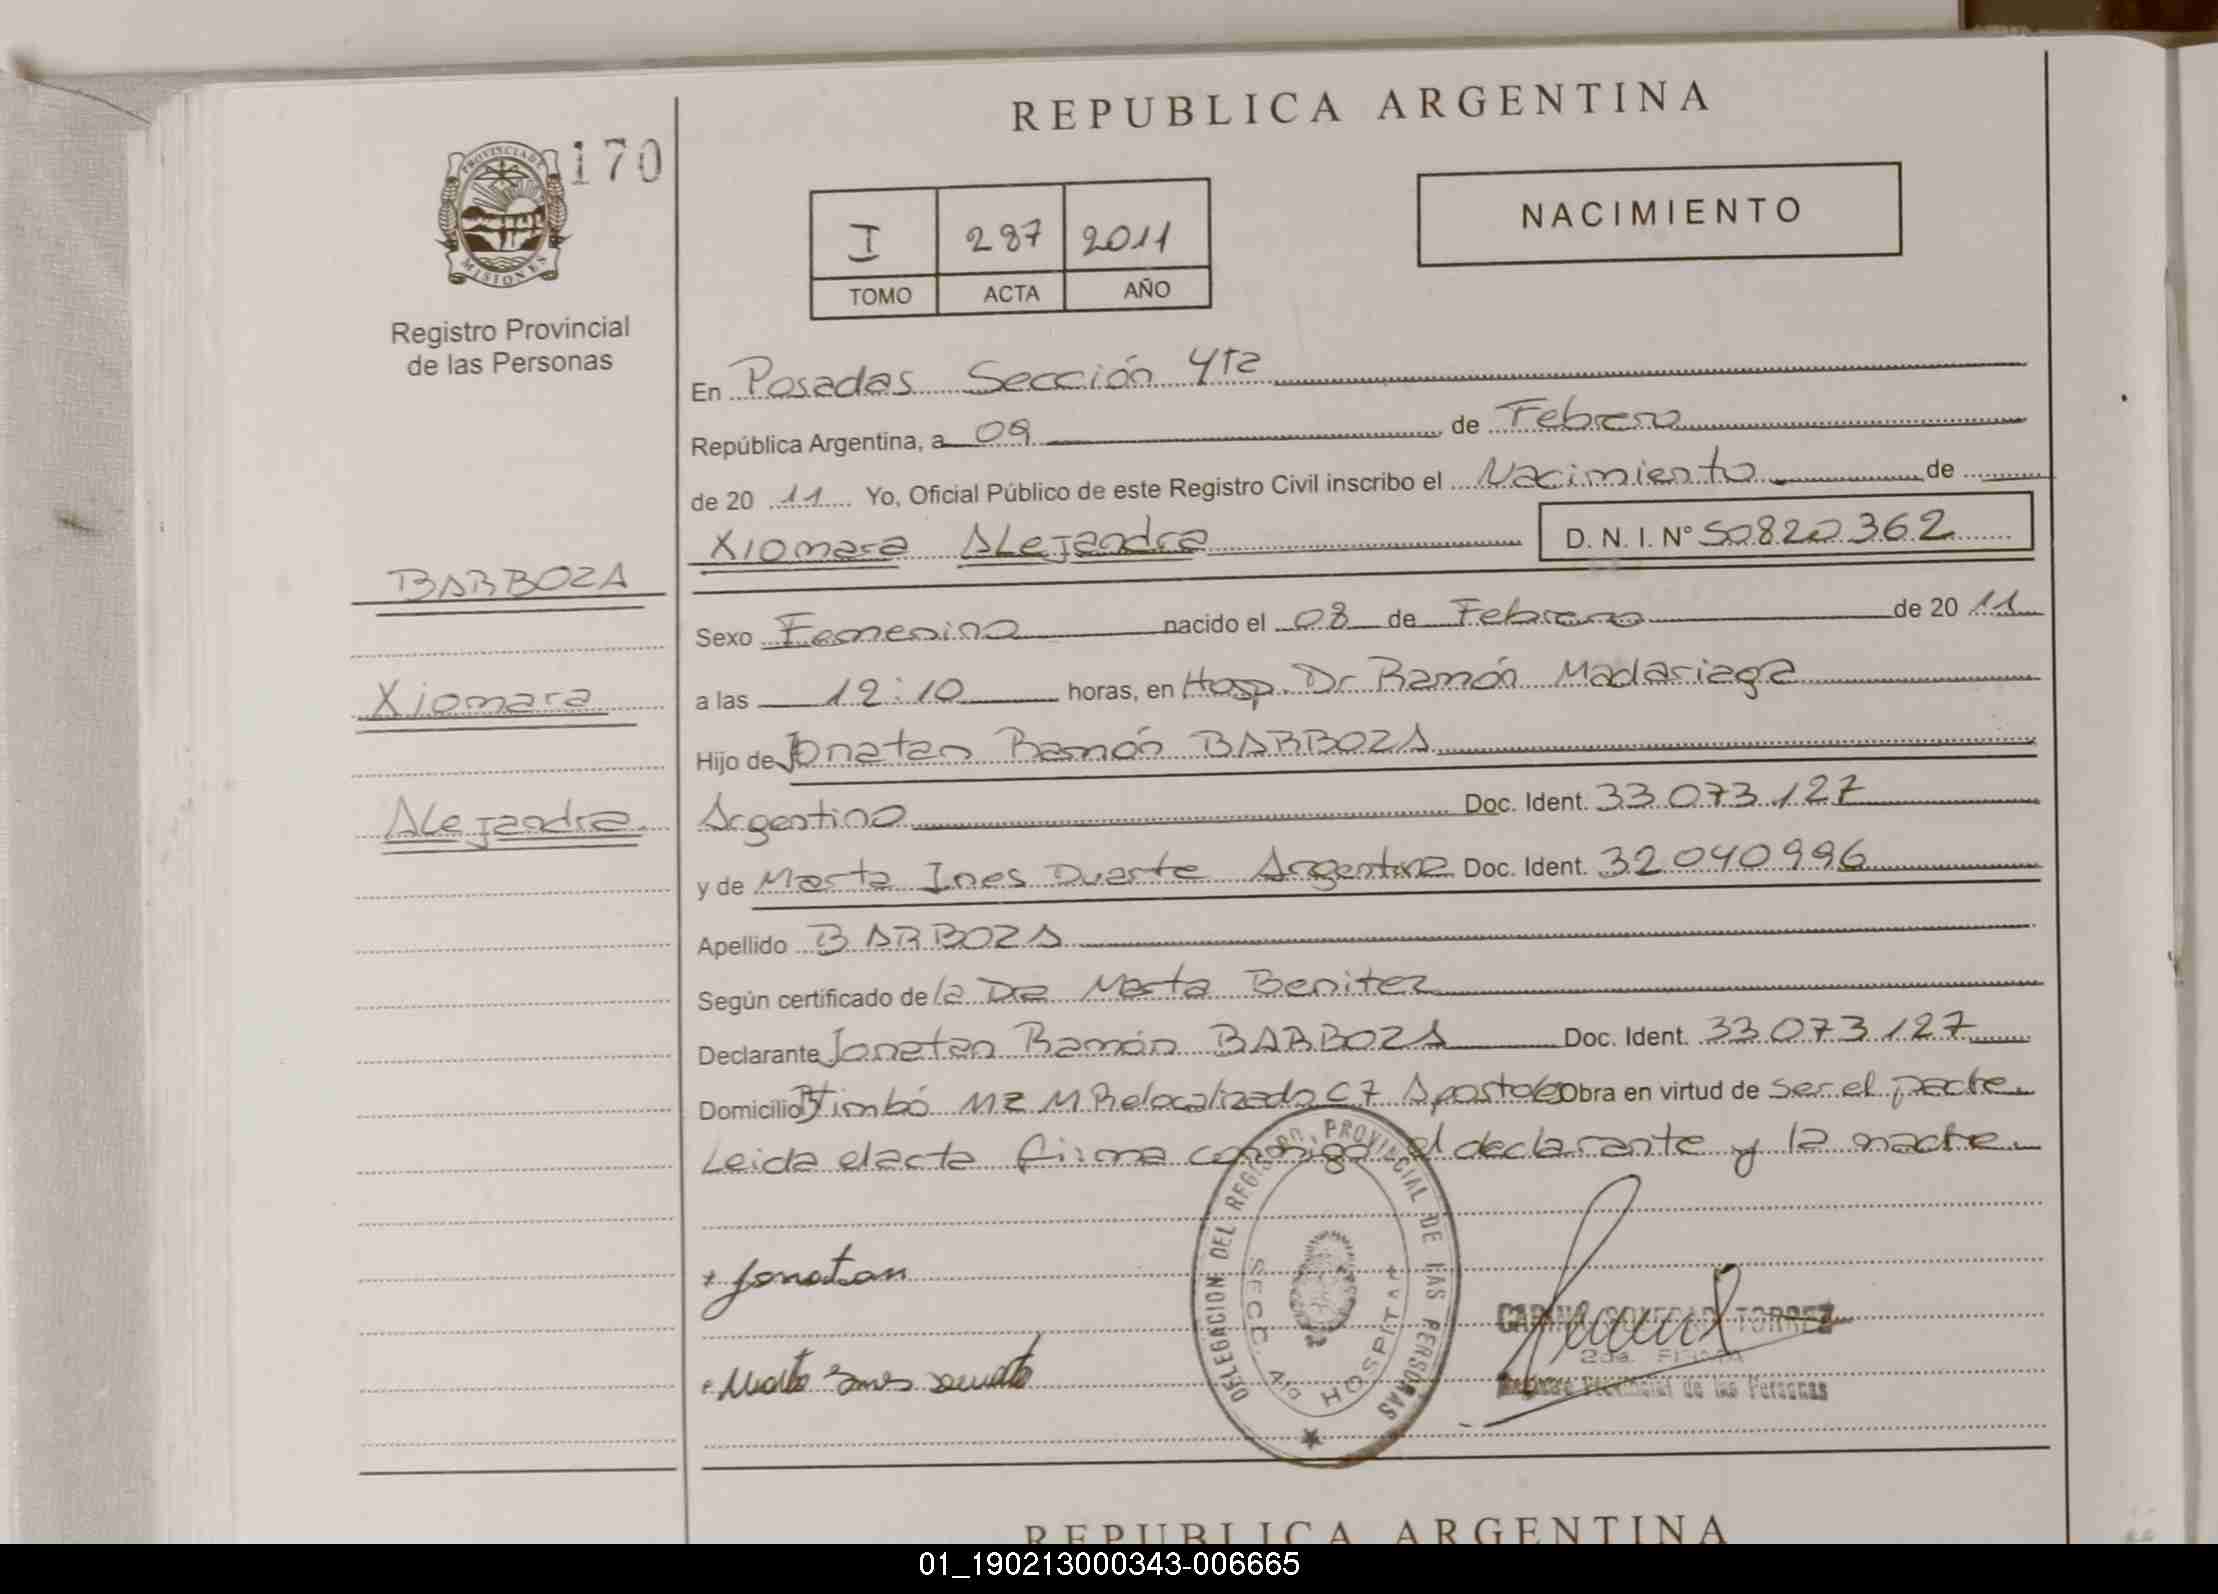 REPUBLICA ARGENTINA
170
PROVINCIA DE
MISIONES
Registro Provincial
de las Personas
I 287 2011
TOMO ACTA AÑO
NACIMIENTO
En Posadas Sección 4ta
República Argentina, a 09 de Febrero
de 20 11 Yo, Oficial Público de este Registro Civil inscribo el Nacimiento de
Xiomara Alejandra D. N. I. Nº 50820362
BARBOZA
Xiomara
Alejandra
Sexo Femenino nacido el 08 de Febrero de 20 11
a las 12:10 horas, en Hosp. Dr Ramón Madariaga
Hijo de Jonatan Ramón BARBOZA
Argentino Doc. Ident. 33.073.127
y de Marta Ines Duarte Argentina Doc. Ident. 32.040.996
Apellido BARBOZA
Según certificado de la Dra Marta Benitez
Declarante Jonatan Ramón BARBOZA Doc. Ident. 33.073.127
Domicilio Timbó MZ M Relocalizado C7 Apostoles Obra en virtud de ser el padre
Leida el acta firma conmigo el declarante y la madre
DELEGACION DEL REGISTRO PROVINCIAL DE LAS PERSONAS
SECC. 4ta HOSPITAL
Jonatan
Marta Ines Duarte
CARINA SOLEDAD TORREZ
2da. FIRMA
Registro Provincial de las Personas
REPUBLICA ARGENTINA
01_190213000343-006665